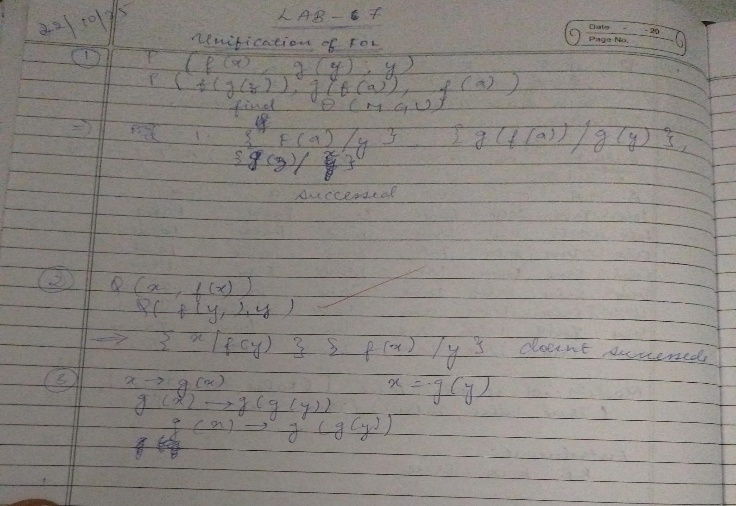 22/10/25
LAB-67
Date 20
Page No.
Unification of FOL
① P (f(x), g(y), y)
P (f(g(z)), g(f(a)), f(a))
find θ (MGU)
⇒ { f(a)/y } { g(f(a)) / g(y) },
{ g(z)/ x }
succeesed
② Q (x, f(x))
Q( f(y), y )
⇒ { x/f(y) } { f(x) /y } doesnt succeede
③ x → g(x) x = g(y)
g (x) → g(g(y))
g (x) → g (g(y))